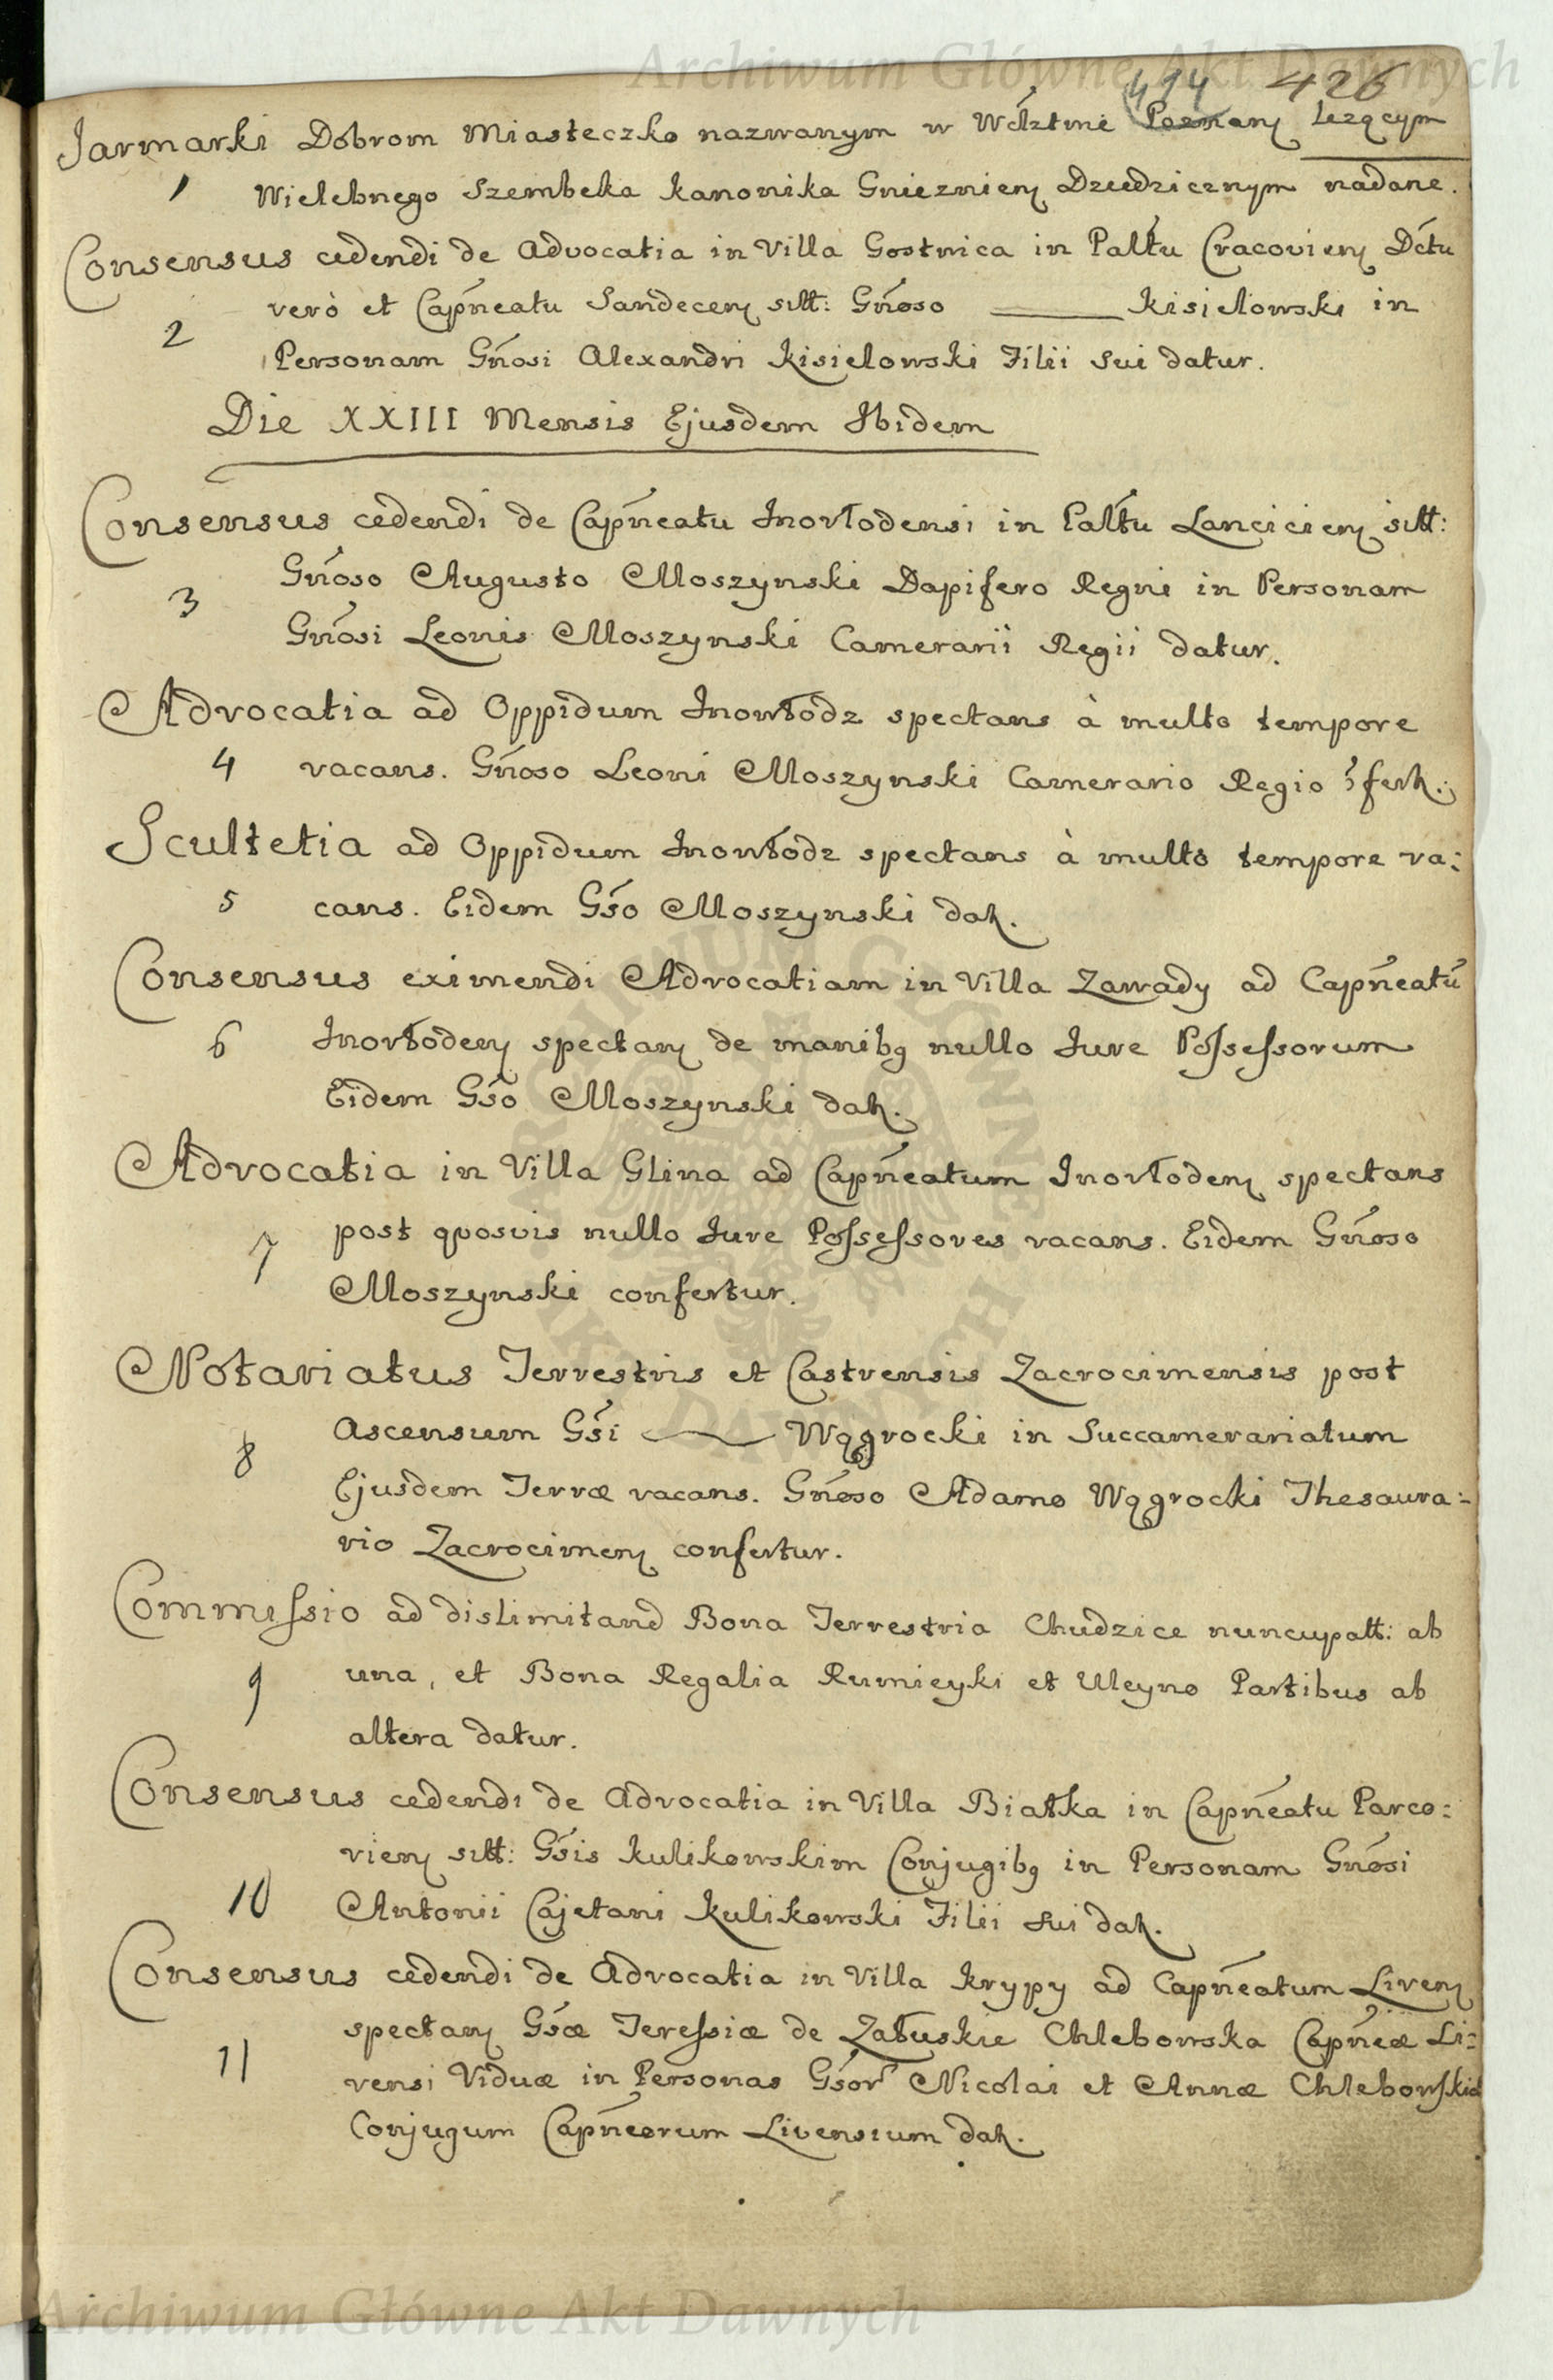 Archiwum Główne Akt Dawnych
414 426
Jarmarki Dobrom Miasteczko nazwanym w Wdztwie Poznanȷ̃ leżącym
1 Wielebnego Szembeka Kanonika Gnieznienȷ̃ Dziedzicznym nadane.
Consensus cedendi de Advocatia in Villa Gostwica in Palttu Cracovienȷ̃ Dćtu
2 verò et Capńeatu Sandecenȷ̃ sitt: Gńoso ——— Kisielowski in
Personam Gńosi Alexandri Kisielowski Filii Sui datur.
Die XXIII Mensis Ejusdem Ibidem
Consensus cedendi de Capńeatu Inovłodensi in Palttu Lancicienȷ̃ sitt:
3 Gńoso Augusto Moszynski Dapifero Regni in Personam
Gńosi Leonis Moszynski Camerarii Regii datur.
Advocatia ad Oppidum Inowłodz spectans à multo tempore
4 vacans. Gńoso Leoni Moszynski Camerario Regio
Scultetia ad Oppidum Inowłodz spectans à multo tempore va:
5 cans. Eidem Gśo Moszynski datȷ.
Consensus eximendi Advocatiam in Villa Zawady ad Capńeatū
6 Inovłodenȷ̃ spectanȷ̃ de manibꝫ nullo Jure Possessorum
Eidem Gśo Moszynski datȷ.
Advocatia in Villa Glina ad Capńeatum Inovłodenȷ̃ spectans
7 post quosvis nullo Jure Possessores vacans. Eidem Gńoso
Moszynski confertur.
Notariatus Terrestris et Castrensis Zacrocimensis post
8 Ascensum Gśi ——— Wągrocki in Succamerariatum
Ejusdem Terræ vacans. Gńoso Adamo Wągrocki Thesaura:
rio Zacrocimenȷ̃ confertur.
Commissio ad dislimitand Bona Terrestria Chudzice nuncupatt: ab
9 una, et Bona Regalia Rumieyki et Uleyno Partibus ab
altera datur.
Consensus cedendi de Advocatia in Villa Białka in Capńeatu Parco:
vienȷ̃ sitt: Gśis Kulikowskim Conjugibꝫ in Personam Gńosi
10 Antonii Cajetani Kulikowski Filii sui datȷ.
Consensus cedendi de Advocatia in Villa Krypy ad Capńeatum Livenȷ̃
spectanȷ̃ Gśæ Teressiæ de Załuskie Chlebowska Capńeæ Li:
11 vensi Viduæ in Personas Gśor Nicolai et Annæ Chlebowskich
Conjugum Capńeorum Livensium datȷ.
Archiwum Główne Akt Dawnych